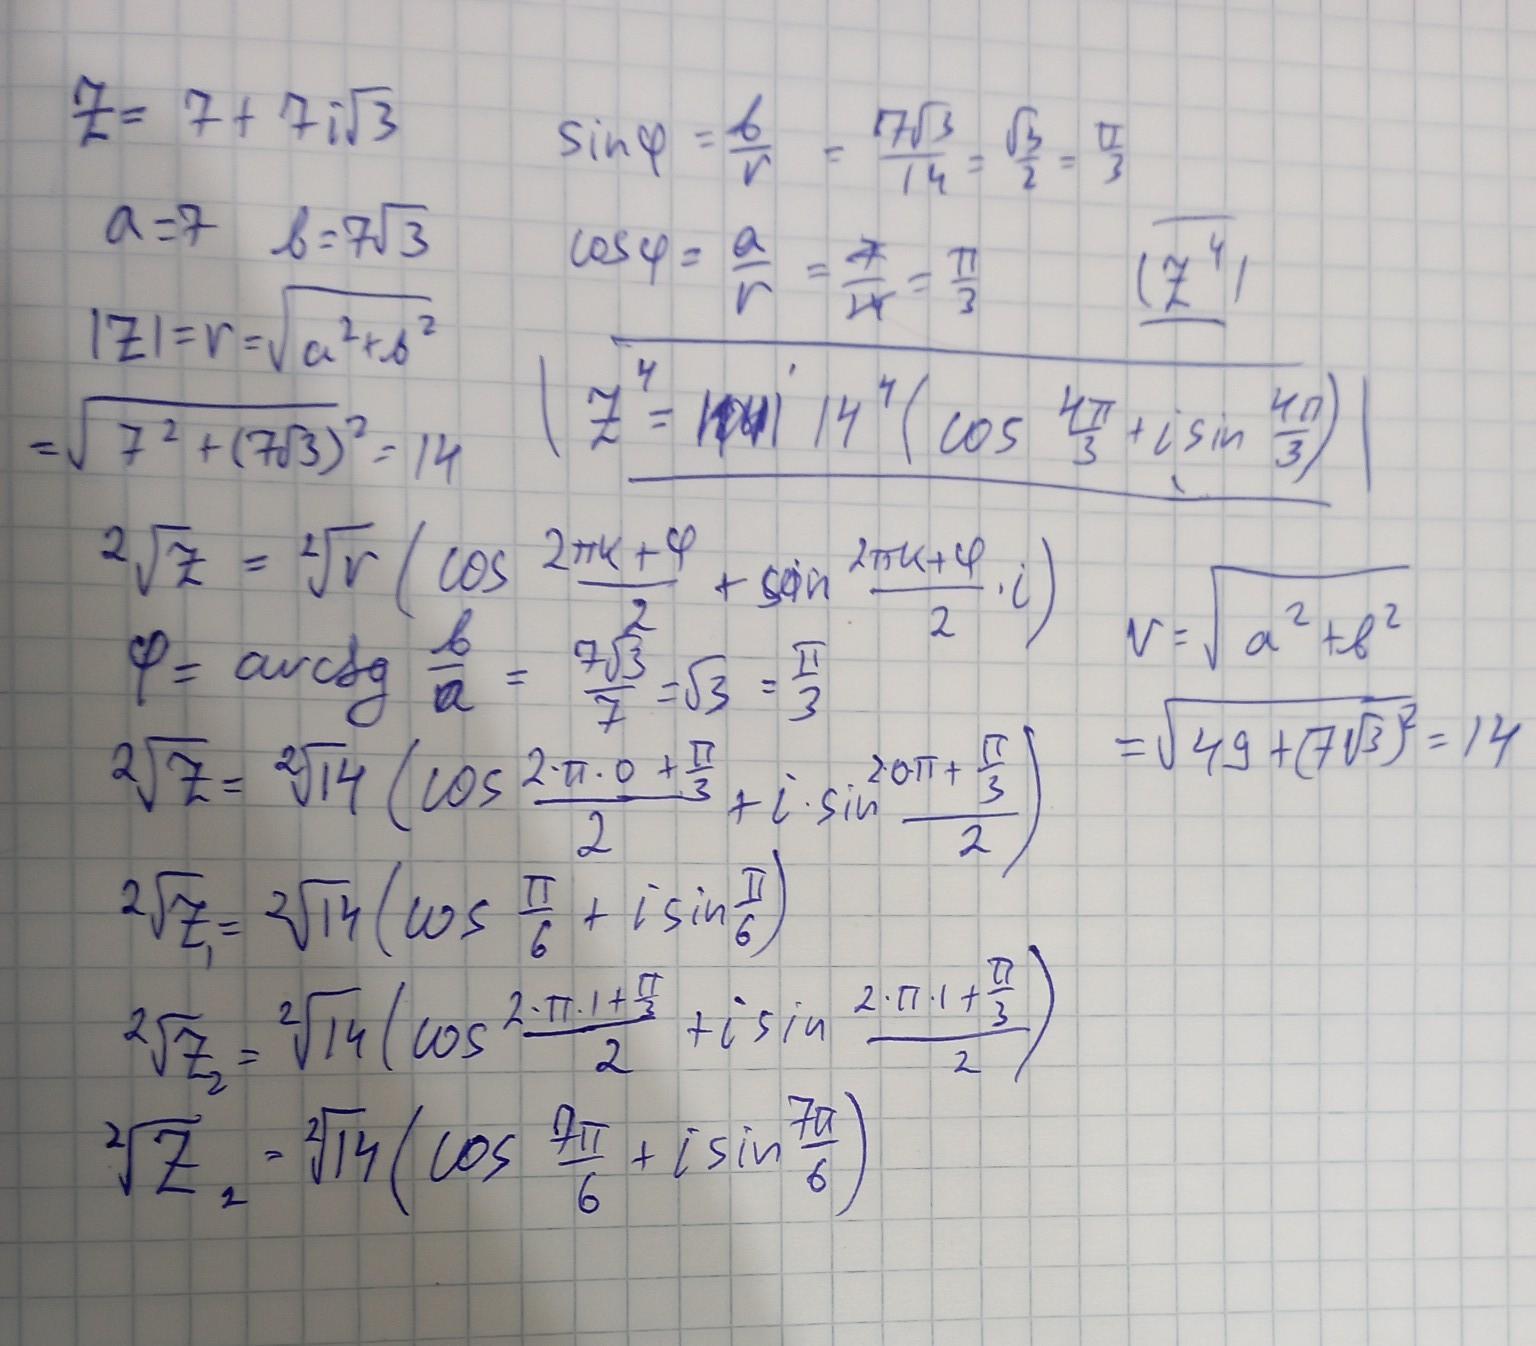 Z = 7 + 7i√3
a = 7 b = 7√3
|Z| = r = √(a² + b²)
= √(7² + (7√3)²) = 14
sin φ = b/r = 7√3/14 = √3/2 = π/3
cos φ = a/r = 7/14 = π/3
(Z⁴)
Z⁴ = 14⁴ (cos 4π/3 + i sin 4π/3)
²√Z = ²√r (cos (2πk + φ)/2 + sin (2πk + φ)/2 · i)
φ = arctg b/a = 7√3/7 = √3 = π/3
r = √(a² + b²)
= √(49 + (7√3)²) = 14
²√Z = ²√14 (cos (2·π·0 + π/3)/2 + i · sin (2·0π + π/3)/2)
²√Z₁ = ²√14 (cos π/6 + i sin π/6)
²√Z₂ = ²√14 (cos (2·π·1 + π/3)/2 + i sin (2·π·1 + π/3)/2)
²√Z₂ = ²√14 (cos 7π/6 + i sin 7π/6)